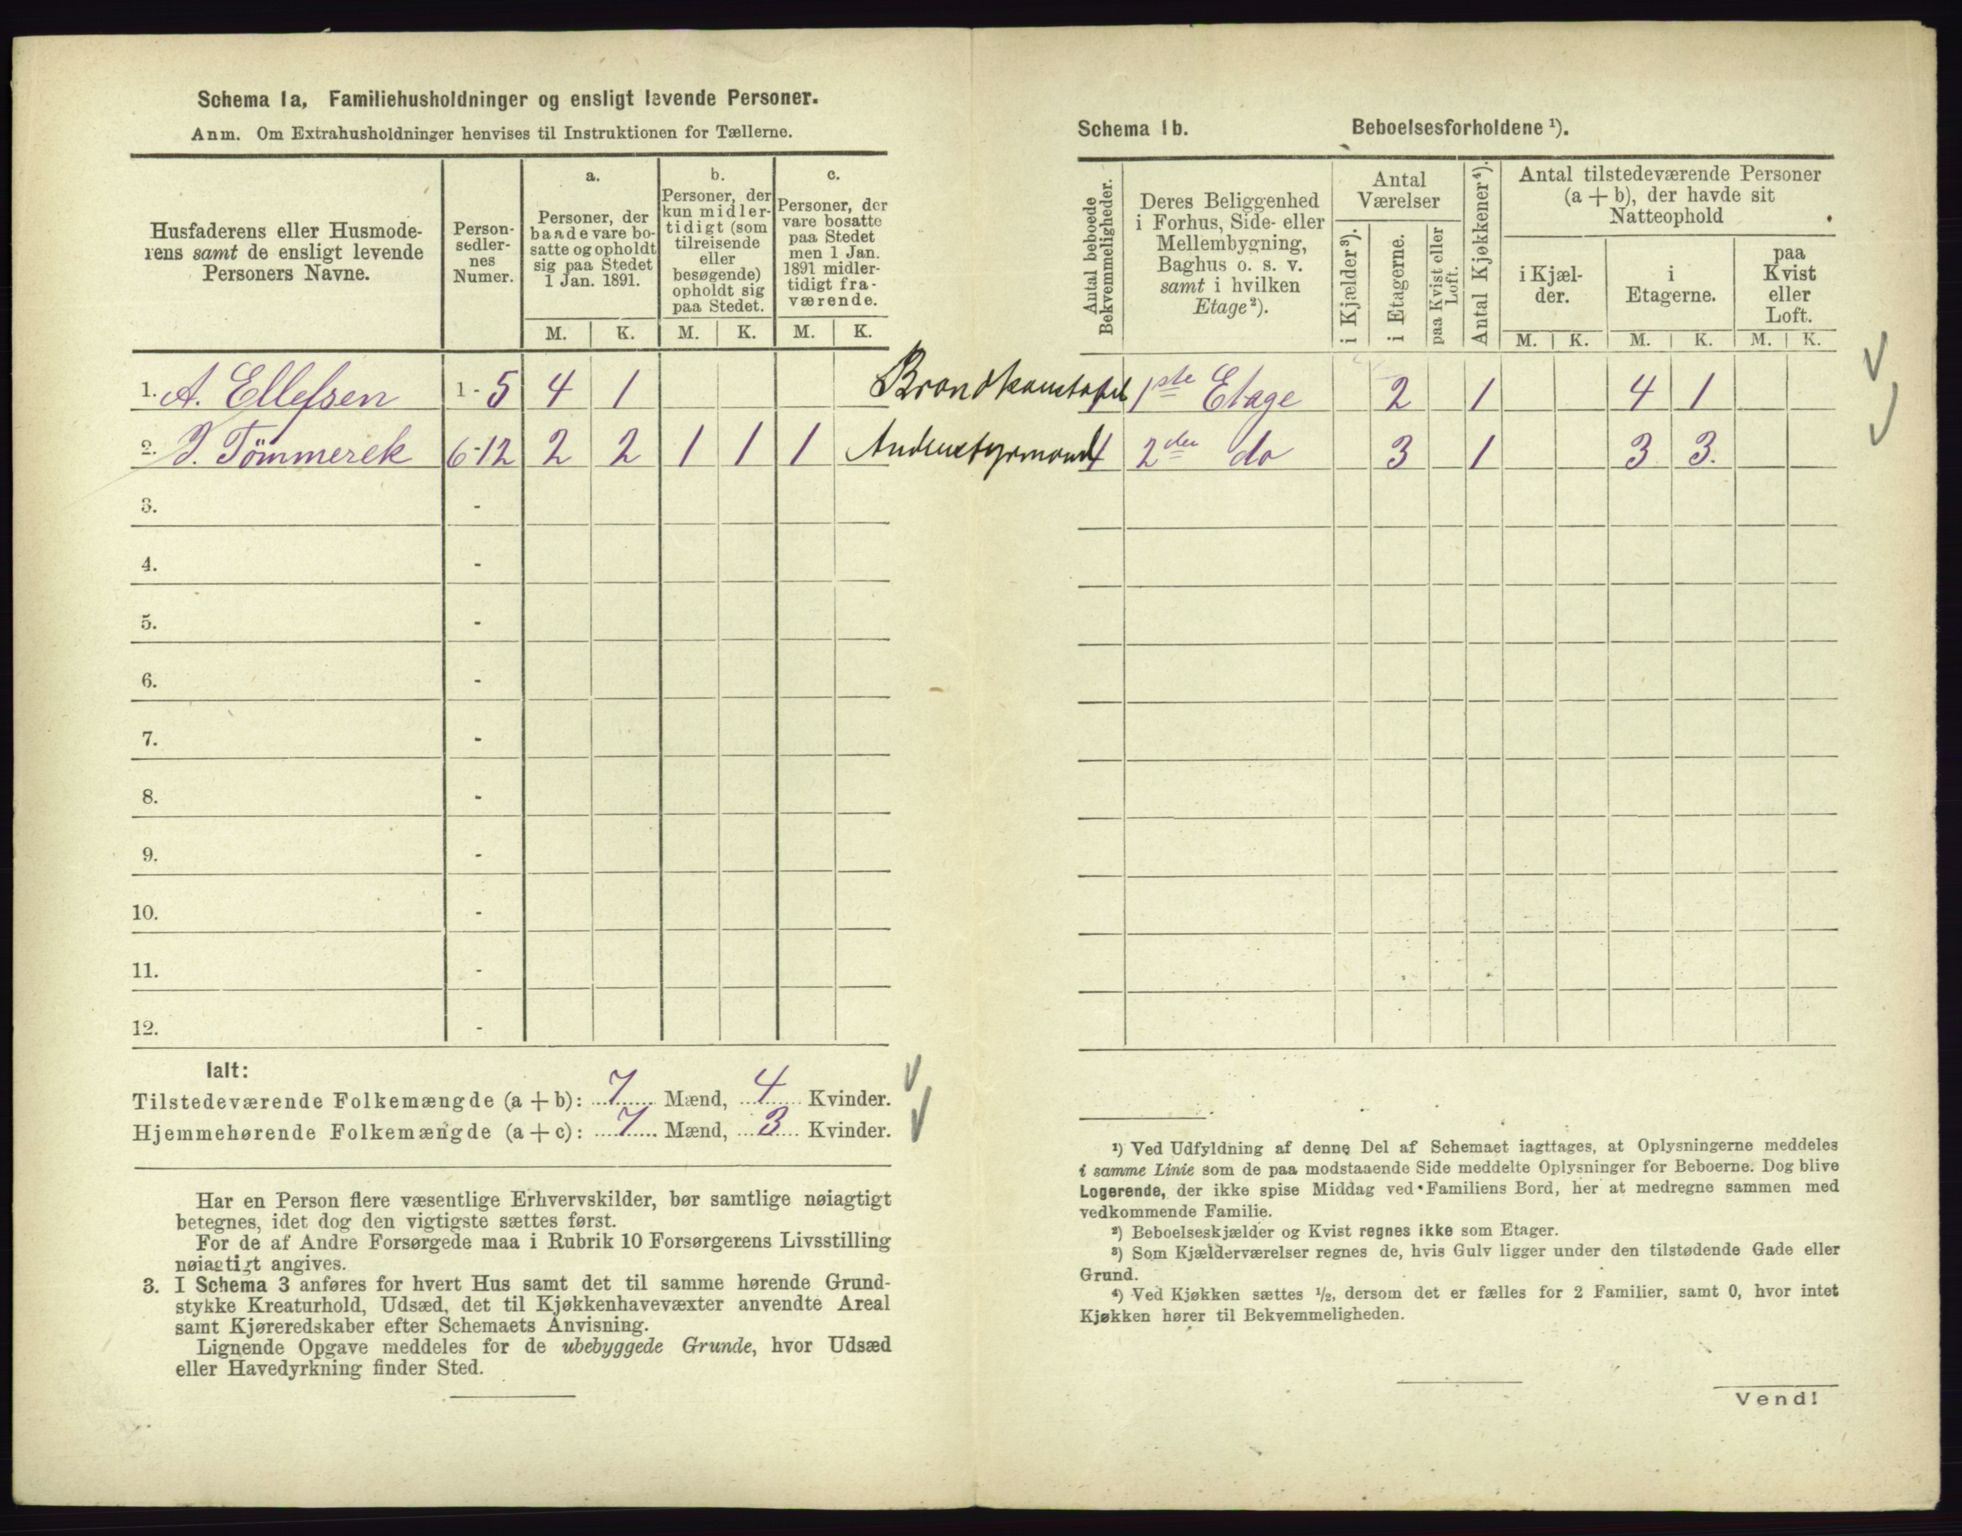 Schema 1a, Familiehusholdninger og ensligt levende Personer.
Anm. Om Extrahusholdninger henvises til Instruktionen for Tællerne.
Husfaderens eller Husmoderens samt de ensligt levende Personers Navne.
Person-
sedler-
nes
Numer.
a.
Personer, der
baade vare bo-
satte og opholdt
sig paa Stedet
1 Jan. 1891.
b.
Personer, der
kun midler-
tidigt (som
tilreisende
eller
besøgende)
opholdt sig
paa Stedet.
c.
Personer, der
vare bosatte
paa Stedet
men 1 Jan.
1891 midler-
tidigt fra-
værende.
M. K. M. K. M. K.
1. A. Ellefsen 1 - 5 4 1 Brandkonstabel
2. J. Tömmerek 6-12 2 2 1 1 1 Andenstyrmand
3. -
4. -
5. -
6. -
7. -
8. -
9. -
10. -
11. -
12. -
Ialt:
Tilstedeværende Folkemængde (a + b): 7 Mænd, 4 Kvinder.
Hjemmehørende Folkemængde (a + c): 7 Mænd, 3 Kvinder.
Har en Person flere væsentlige Erhvervskilder, bør samtlige nøiagtigt
betegnes, idet dog den vigtigste sættes først.
For de af Andre Forsørgede maa i Rubrik 10 Forsørgerens Livsstilling
nøiagtigt angives.
3. I Schema 3 anføres for hvert Hus samt det til samme hørende Grund-
stykke Kreaturhold, Udsæd, det til Kjøkkenhavevæxter anvendte Areal
samt Kjøreredskaber efter Schemaets Anvisning.
Lignende Opgave meddeles for de ubebyggede Grunde, hvor Udsæd
eller Havedyrkning finder Sted.
Schema 1b. Beboelsesforholdene ¹).
Antal beboede
Bekvemmeligheder.
Deres Beliggenhed
i Forhus, Side- eller
Mellembygning,
Baghus o. s. v.
samt i hvilken
Etage²).
Antal
Værelser
i Kjælder³).
i Etagerne.
paa Kvist eller
Loft.
Antal Kjøkkener⁴).
Antal tilstedeværende Personer
(a + b), der havde sit
Natteophold
i Kjæl-
der.
i
Etagerne.
paa
Kvist
eller
Loft.
M. K. M. K. M. K.
1 1ste Etage 2 1 4 1
1 2den do 3 1 3 3.
¹) Ved Udfyldning af denne Del af Schemaet iagttages, at Oplysningerne meddeles
i samme Linie som de paa modstaaende Side meddelte Oplysninger for Beboerne. Dog blive
Logerende, der ikke spise Middag ved Familiens Bord, her at medregne sammen med
vedkommende Familie.
²) Beboelseskjælder og Kvist regnes ikke som Etager.
³) Som Kjælderværelser regnes de, hvis Gulv ligger under den tilstødende Gade eller
Grund.
⁴) Ved Kjøkken sættes ½, dersom det er fælles for 2 Familier, samt 0, hvor intet
Kjøkken hører til Bekvemmeligheden.
Vend!